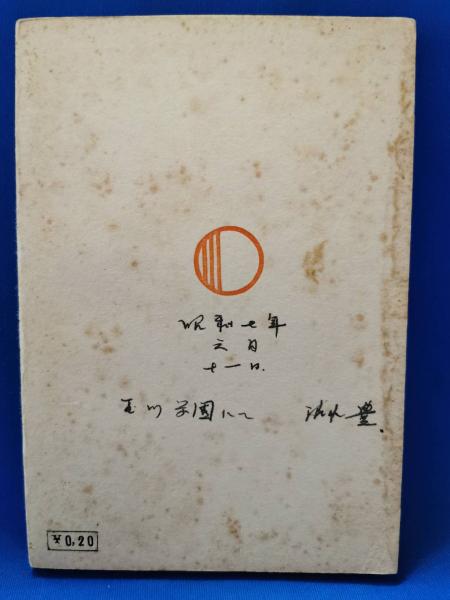 昭和七年
六月
十一日.
玉川学園にて 清水 豊.
¥0,20